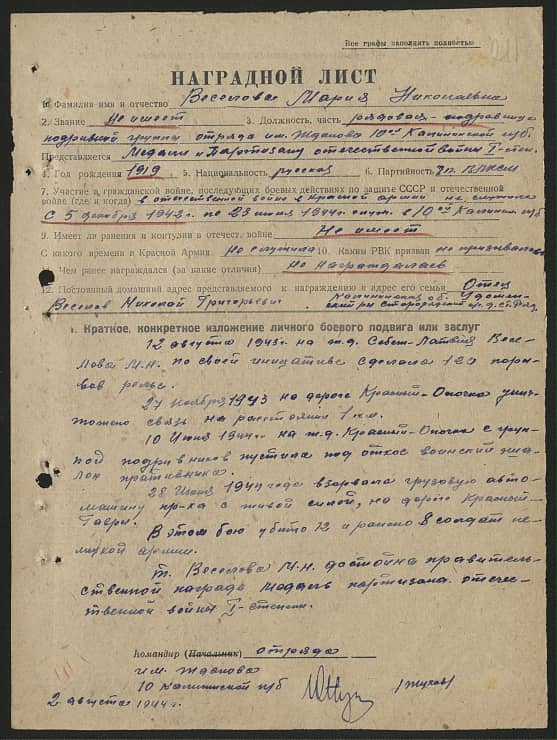 Все графы заполнять полностью
НАГРАДНОЙ ЛИСТ
1. Фамилия имя и отчество Веселова Мария Николаевна
2. Звание Не имеет 3. Должность, часть рядовая - подрывница
подрывной группы отряда им. Жданова 10ой Калининской п/б
Представляется Медали "Партизану отечественной войны I-степ.
4. Год рождения 1919 5. Национальность русская 6. Партийность чл. ВЛКСМ
7. Участие в гражданской войне, последующих боевых действиях по защите СССР и отечественной
войне (где и когда) в отечественной войне в Красной армии не служила
С 5 декабря 1942г. по 23 июля 1944г. в 10ой Калинин. п/б
9. Имеет ли ранения и контузии в отечест. войне Не имеет
С какого времени в Красной Армии Не служила 10. Каким РВК призван не призывалась
Чем ранее награждался (за какие отличия) Не награждалась
12. Постоянный домашний адрес представляемого к награждению и адрес его семьи Отец
Веселов Николай Григорьевич Калининская об.
1. Краткое, конкретное изложение личного боевого подвига или заслуг
12 августа 1943г. на ж.д. Себеж-Латвия Весе-
лова М.Н. по своей инициативе сделала 120 поры-
вов рельс.
27 ноября 1943 на дороге Красный-Опочка унич-
тожено связь на расстоянии 1 км.
10 Июня 1944г. на ж.д. Красный-Опочка с груп-
пой подрывников пустила под откос воинский эша-
лон противника.
28 Июня 1944 года взорвала грузовую авто-
машину пр-ка с живой силой, на дороге Красный-
Гавры.
В этом бою убито 12 и ранено 8 солдат не-
мецкой армии.
т. Веселова М.Н. достойна правитель-
ственной награде Медаль партизана отече-
ственной войны I-степени.
Командир (Начальник) отряда
им. Жданова
10 Калининской п/б (Жуков)
2 августа 1944г.